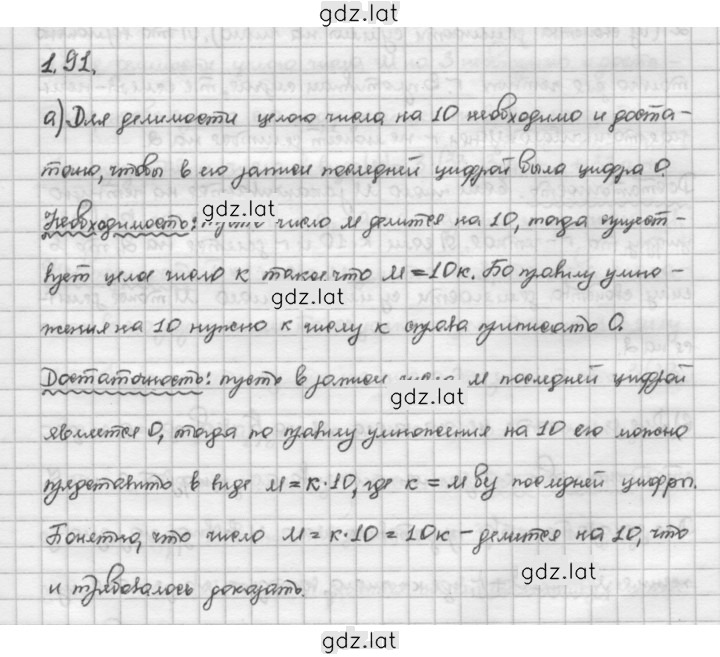 gdz.lat
1.91.
а) Для делимости целого числа на 10 необходимо и доста-
точно, чтобы в его записи последней цифрой была цифра 0.
gdz.lat
Необходимость: пусть число м делится на 10, тогда сущест-
вует целое число к такое что м = 10к. По правилу умно-
gdz.lat
жения на 10 нужно к числу к справа приписать 0.
Достаточность: пусть в записи числа м последней цифрой
gdz.lat
является 0, тогда по правилу умножения на 10 его можно
представить в виде м = к·10, где к = м без последней цифры.
Понятно, что число м = к·10 = 10к - делится на 10, что
gdz.lat
и требовалось доказать.
gdz.lat